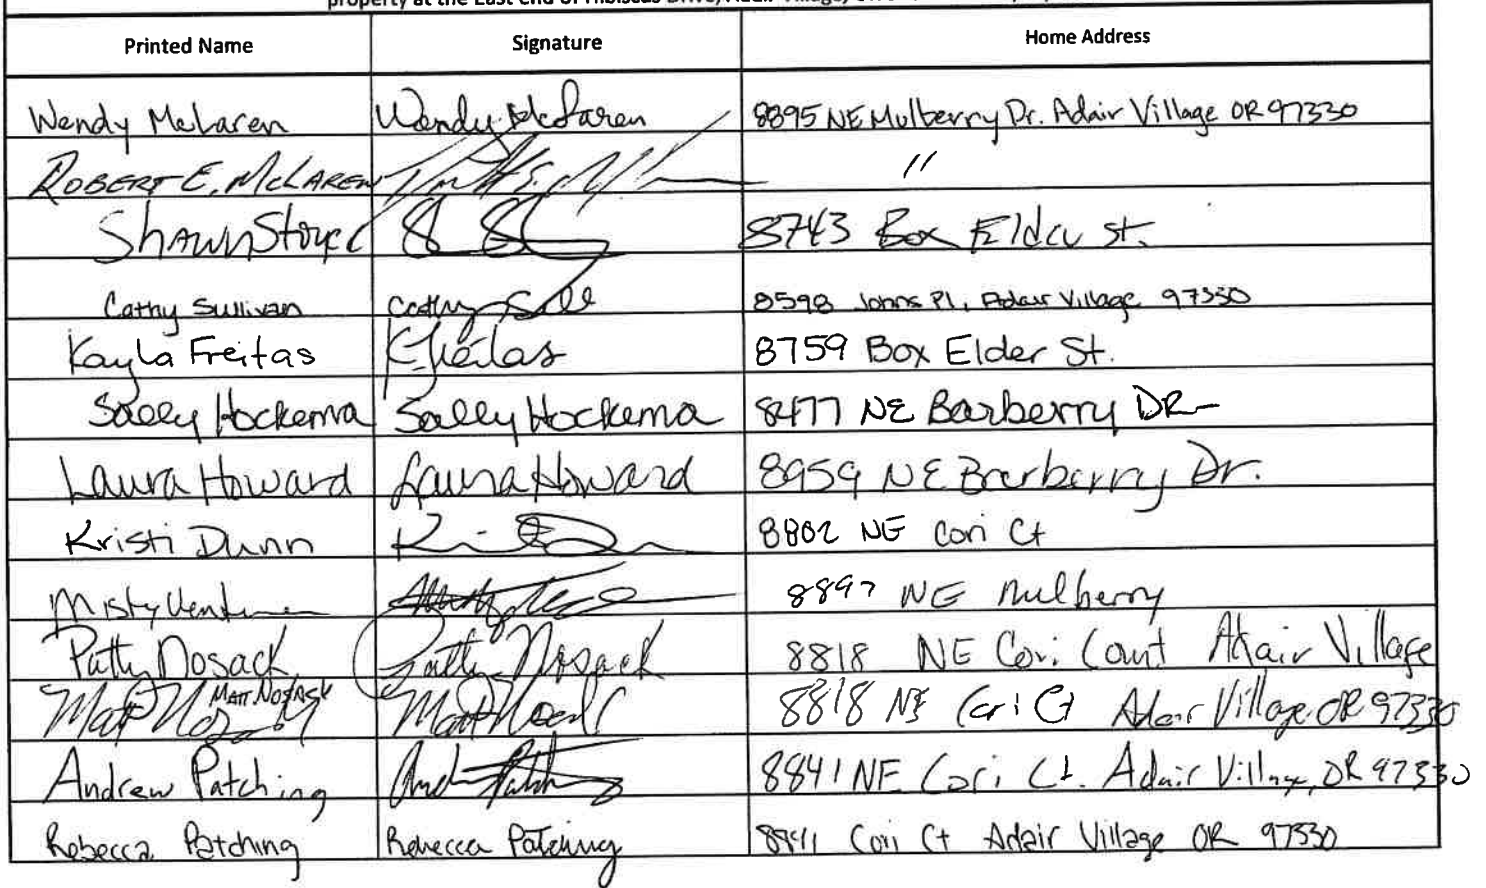 property at the East end of Hibiscus Drive, Adair Village,
Printed Name Signature Home Address
Wendy McLaren Wendy McLaren 8895 NE Mulberry Dr. Adair Village OR 97330
ROBERT E. McLAREN "
Shawn 8743 Box Elder St.
Cathy Sullivan Cathy 8598 Johns Pl, Adair Village 97330
Kayla Freitas K Freitas 8759 Box Elder St.
Sally Hockema Sally Hockema 8477 NE Barberry DR
Laura Howard Laura Howard 8959 NE Barberry Dr.
Kristi Dunn 8802 NE Cori Ct
Misty 8897 NE Mulberry
Patty Nosack Patty Nosack 8818 NE Cori Court Adair Village
Matt Nosack MATT NOSACK Matt 8818 NE Cori Ct Adair Village OR 97330
Andrew Patching 8841 NE Cori Ct. Adair Village, OR 97330
Rebecca Patching Rebecca Patching 8841 Cori Ct Adair Village OR 97330